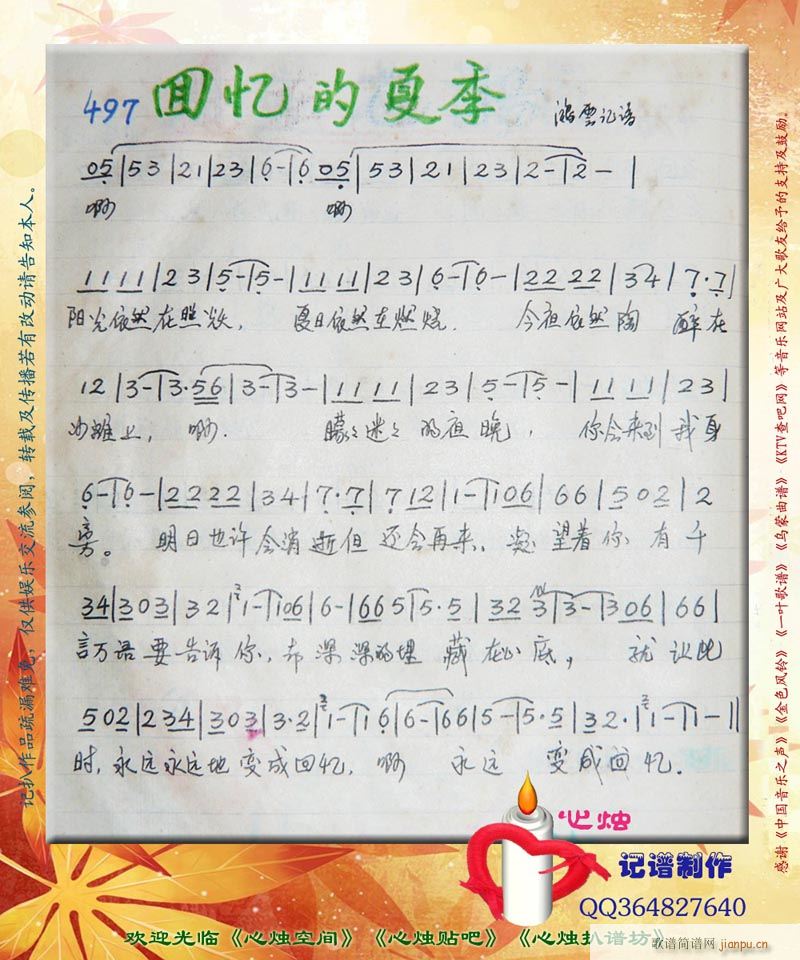 497 回忆的夏季 鸿雲记谱
05|53|21|23|6-|6 05|53|21|23|2-|2-|
啊 啊
1111|23|5-|5-|1111|23|6-|6-|2222|34|7·7|
阳光依然在照耀， 夏日依然在燃烧. 今夜依然陶 醉在
12|3-|3·56|3-|3-|1111|23|5-|5-|1111|23|
沙难上， 啊. 朦々迷々的夜晚， 你会来到我身
6-|6-|2222|34|7·7|712|1-|106|66|502|2
旁。 明日也许会消逝但还会再来、 凝望着你 有千
34|303|32|1-|106|6-|665|5·5|32 3|3-|306|66|
言万语要告诉你、却深深的埋藏在心底， 就让此
502|234|303|3·2|1-|16|6-|66|5-|5·5|32·|1-|1-||
时，永远永远地变成回忆， 啊 永远 变成回忆.
记扒作品疏漏难免，仅供娱乐交流参阅，转载及传播若有改动请告知本人。
感谢《中国音乐之声》《金色风铃》《一叶歌谱》《乌蒙曲谱》《KTV查吧网》等音乐网站及广大歌友给予的支持及鼓励。
心烛
记谱制作
QQ364827640
欢迎光临《心烛空间》《心烛贴吧》《心烛扒谱坊》
歌谱简谱网 jianpu.cn